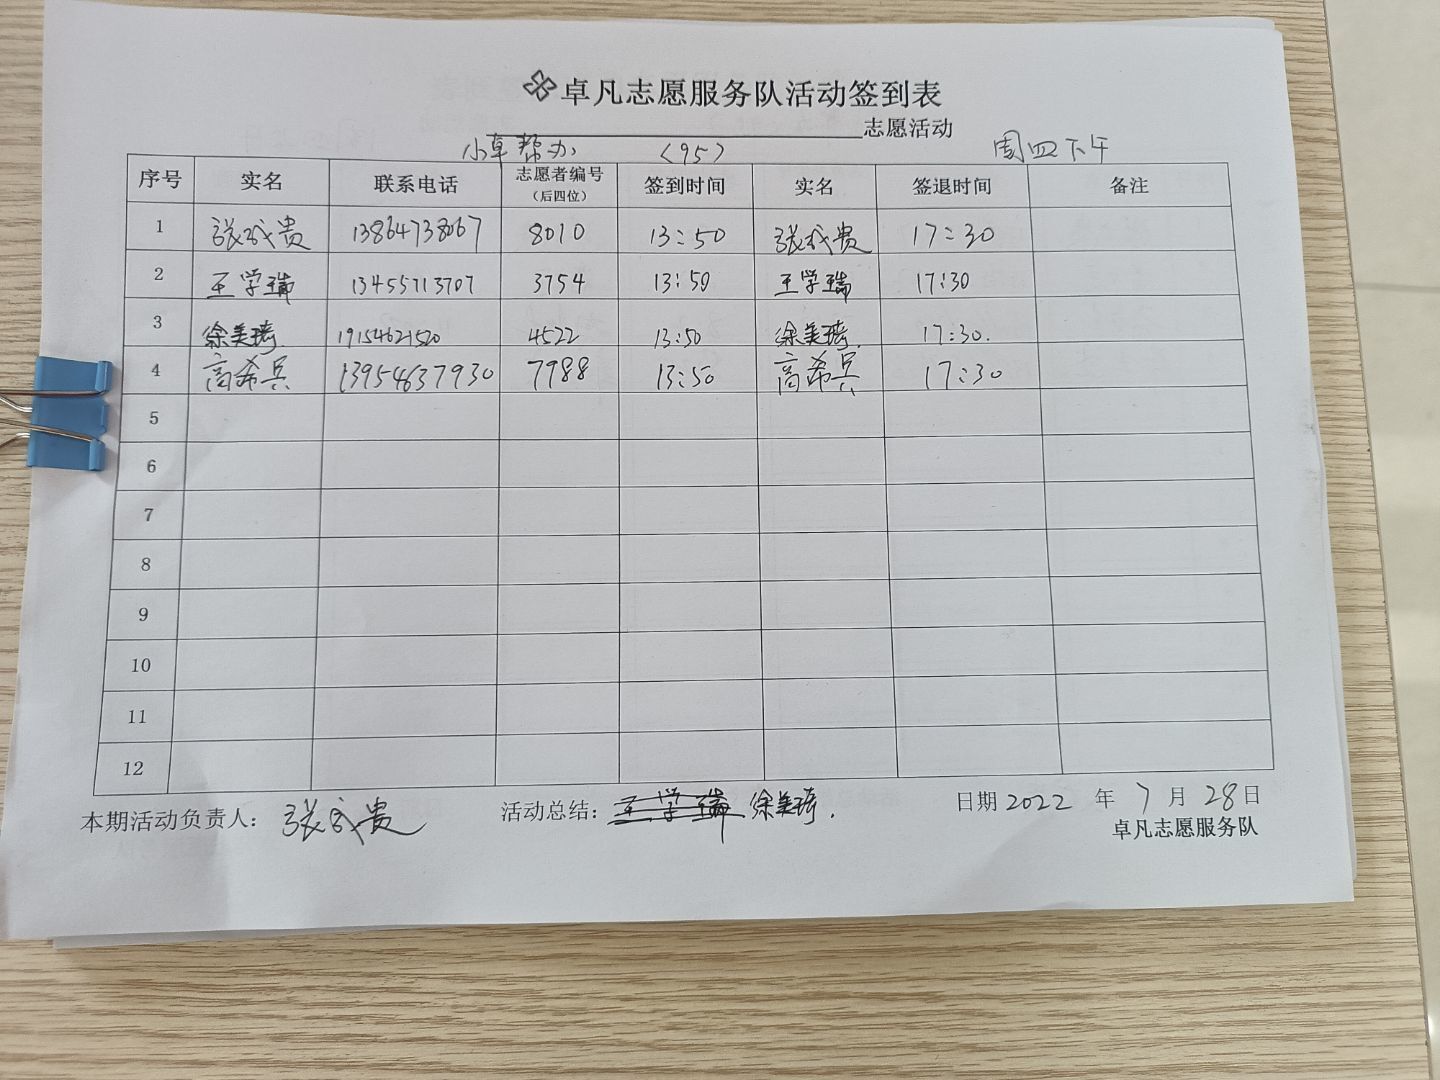 卓凡志愿服务队活动签到表
志愿活动
小卓帮办 （95） 周四下午
序号 实名 联系电话 志愿者编号（后四位） 签到时间 实名 签退时间 备注
1 张成贵 13864738067 8010 13:50 张成贵 17:30
2 王学瑞 13455713707 3754 13:50 王学瑞 17:30
3 徐美琦. 19154621520 4522 13:50 徐美琦. 17:30.
4 高希兵 13954637930 7988 13:50 高希兵 17:30
5
6
7
8
9
10
11
12
本期活动负责人：张成贵 活动总结：王学瑞 徐美琦. 日期 2022 年 7 月 28 日
卓凡志愿服务队